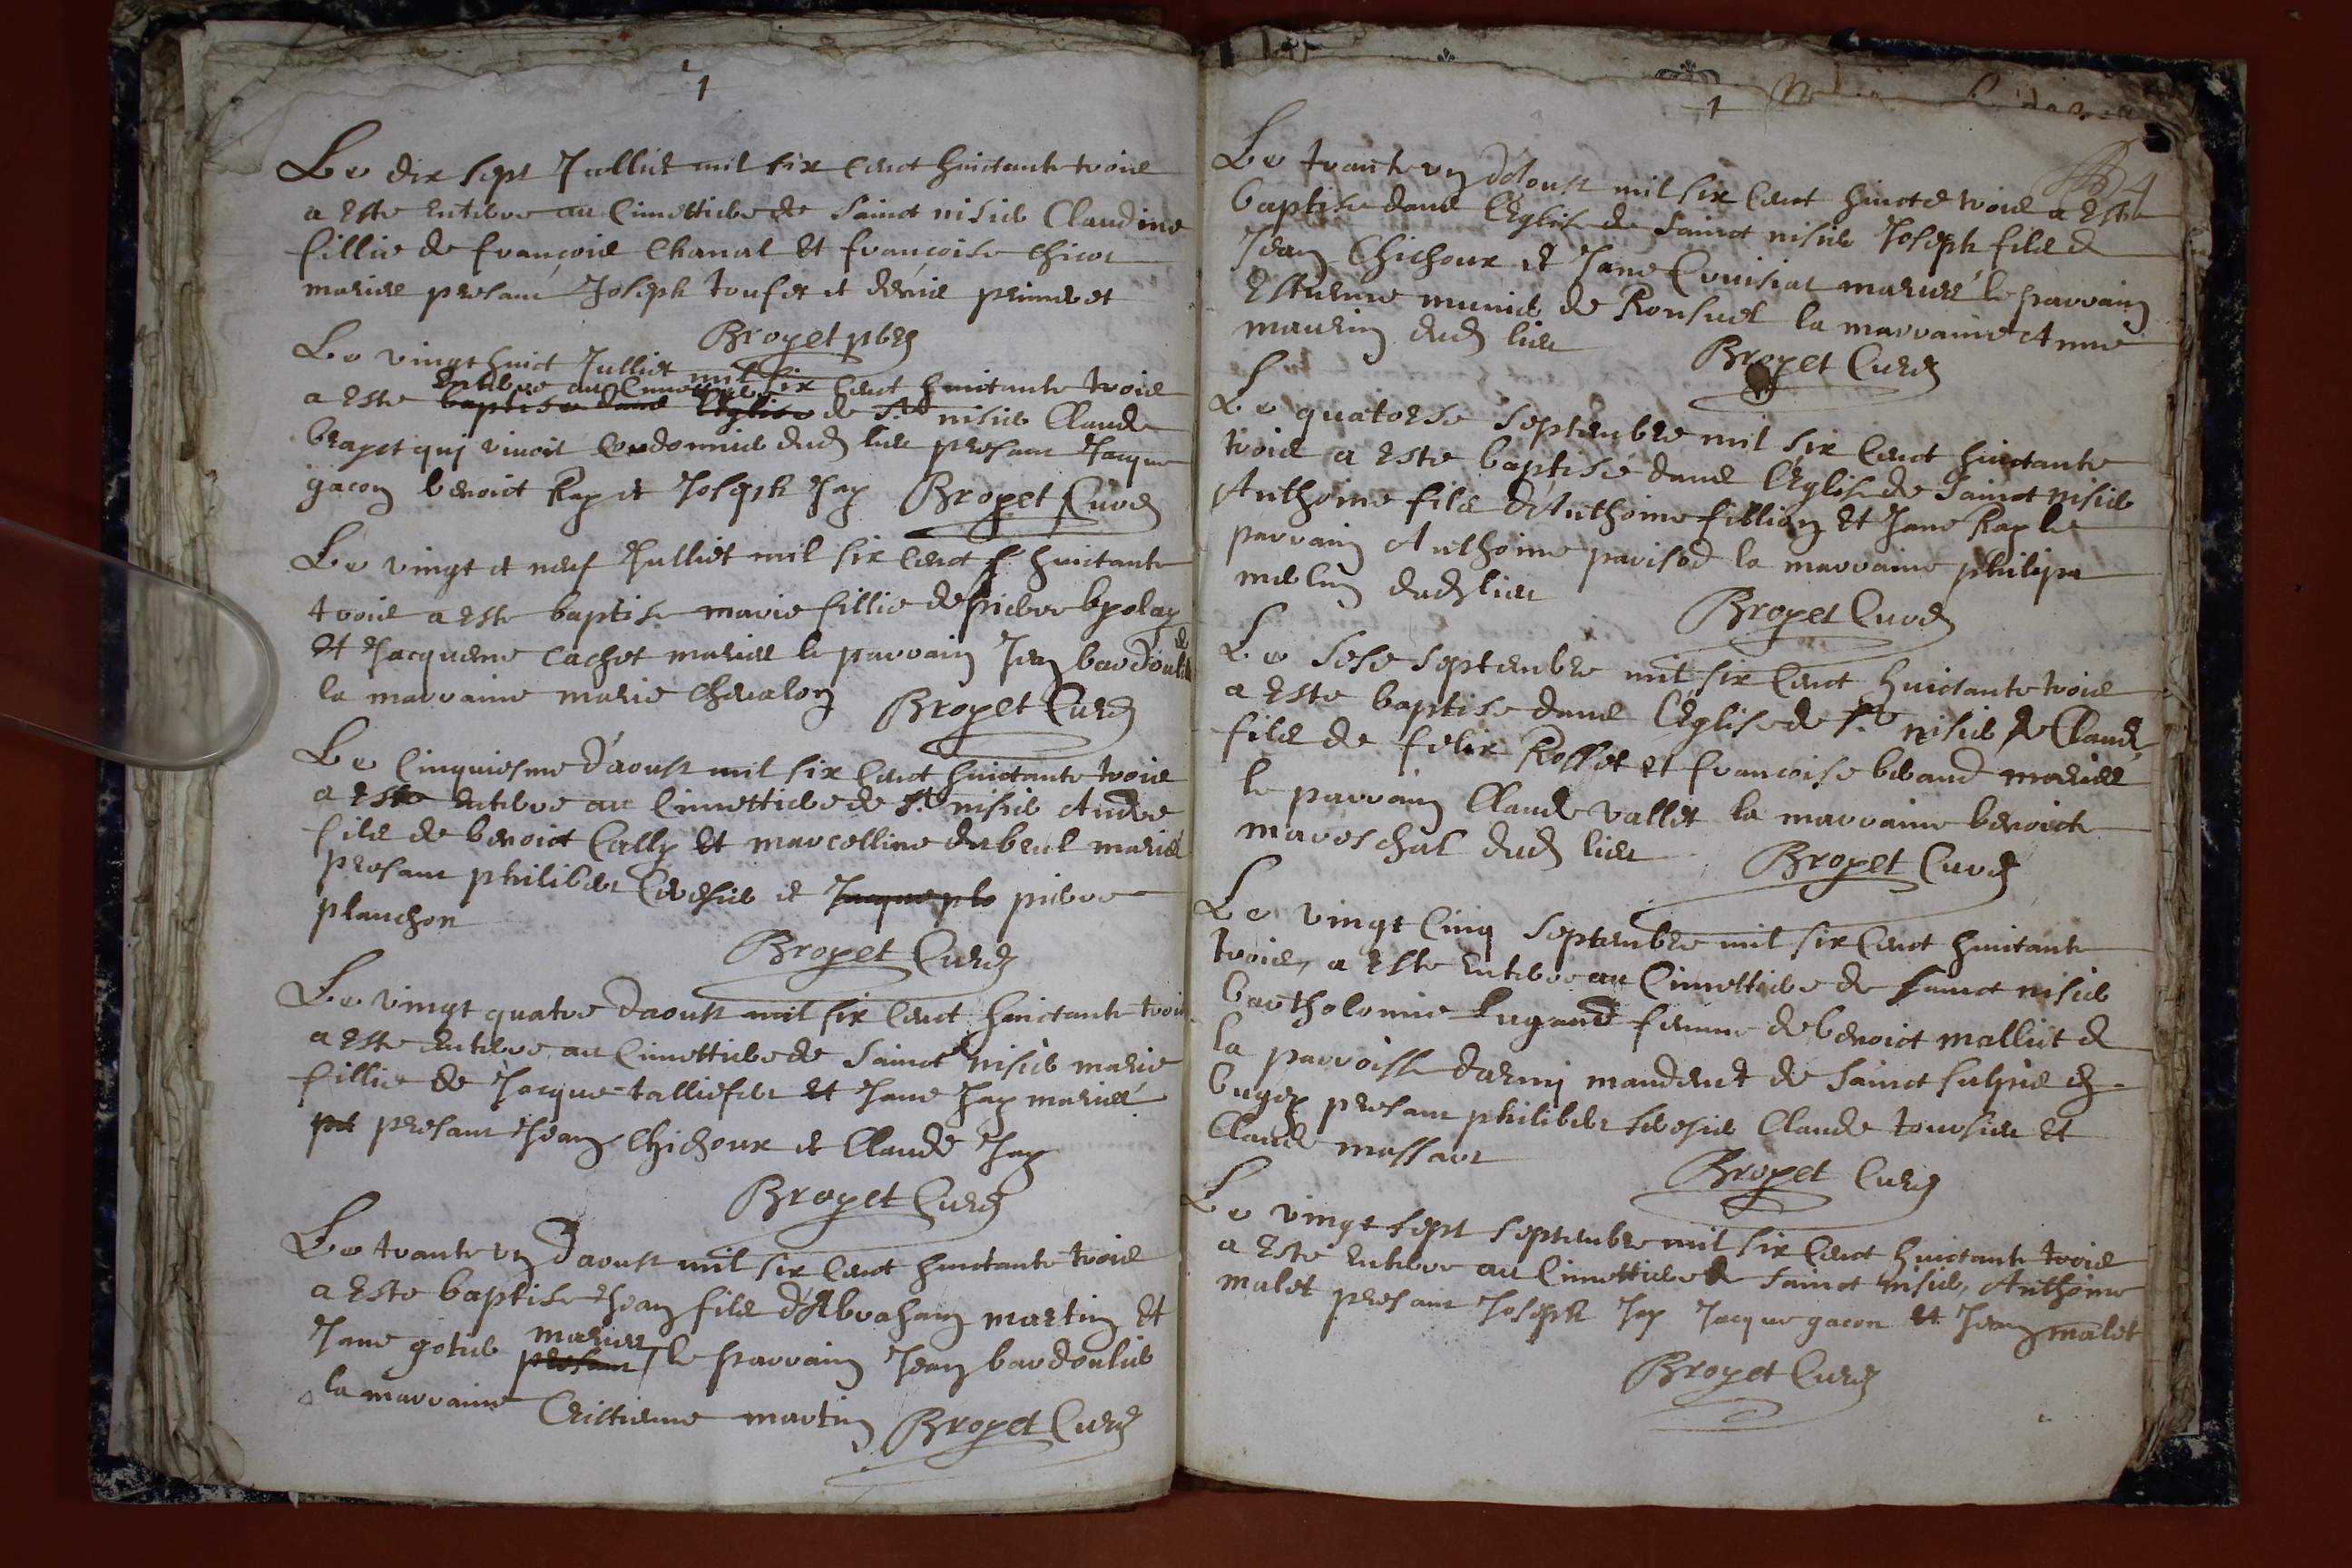 1
Le dix sept Julliet mil six cent huictante trois
a este enterre au Cimettiere de Sainct nisier Claudine
fillie de françois Chanal et françoise Chicot
maries presant Joseph toufet et denis primet
Broyet pbre
Le vingt huict Julliet mil six cent huictante trois
enterre au Cimettiere
a este baptise dans l'Eglise de St nisier Claude
brayet qui vivoit Cordonnier dud lieu presant Jacque
gacon benoict Ray et Joseph Jay Broyet Curé
Le vingt et neuf Julliet mil six cent huictante
trois a este baptise marie fillie de pierre
et Jacqueme Cachet maries le parrain Jean
la marraine marie Chevalon Broyet Curé
Le Cinquiesme d'aoust mil six Cent huictante trois
a este enterre au Cimettiere de St nisier Andre
fils de benoict Cally et marcelline dubreul maries
presant philibert Cresie et Jacque plo pierre
planchon
Broyet Curé
Le vingt quatre d'aoust mil six Cent huictante trois
a este enterre au Cimettiere de Sainct nisier marie
fillie de Jacque talliefer et Jane Jay maries
pre presant Jean Chichoux et Claude Jay
Broyet Curé
Le trante un d'aoust mil six Cent huictante trois
a este baptise Jean fils d'Abraham martin et
maries
Jane gotier presant le parrain Jean bardoulier
la marraine Cristienne martin Broyet Curé
1
4
Le trante un d'aoust mil six Cent huicte trois a este
baptise dans l'Eglise de Sainct nisier Joseph fils de
Jean Chichoux et Jane Cruisiat maries le parrain
Estienne munier de Ronsuel la marraine Anne
maurin dud lieu Broyet Curé
Le quatorse Septembre mil six Cent huictante
trois a este baptisé dans l'Eglise de Sainct nisier
Anthoine fils d'Anthoine fillion et Jane Ray le
parrain Anthoine parisod la marraine philipa
merlin dud lieu Broyet Curé
Le Sese Septembre mil six Cent huictante trois
a este baptise dans l'Eglise de St nisier Claude
fils de felix Rosset et françoise beraud maries
le parrain Claude vallet la marraine benoicte
mareschal dud lieu Broyet Curé
Le vingt Cinq Septembre mil six Cent huictante
trois, a este enterre au Cimettiere de Sainct nisier
bartholomie Lugand femme de benoict malliet de
la parroisse mandement de Sainct en
bugey presant philibert Claude toursier et
Claude massart
Broyet Curé
Le vingt sept Septembre mil six Cent huictante trois
a este enterre au Cimettiere de Sainct nisier, Anthoine
malet presant Joseph Jay Jacque gacon et Jean malet
Broyet Curé